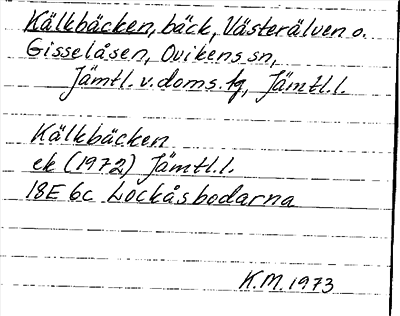 Kälkbäcken, bäck, Västerälven o.
Gisselåsen, Ovikens sn,
Jämtl. v. doms. fg, Jämtl. l.
Kälkbäcken
ek (1972) Jämtl. l.
18E 6c Lockåsbodarna
K.M. 1973